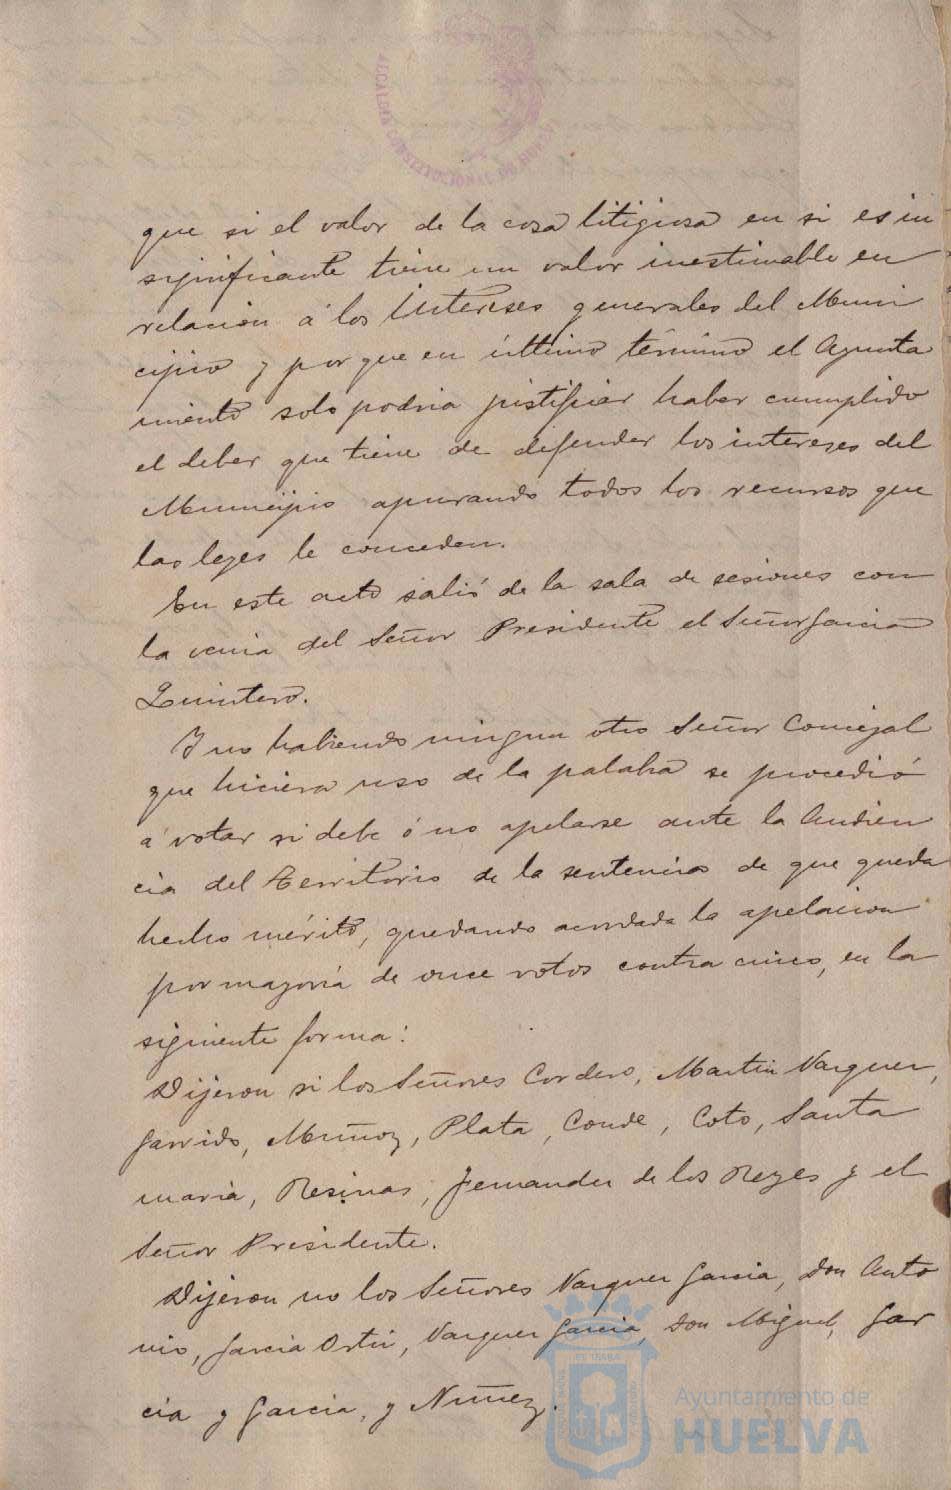 ALCALDIA CONSTITUCIONAL DE HUELVA
que si el valor de la cosa litigiosa en si es in
significante tiene un valor inestimable en
relacion á los Intereses generales del Muni
cipio y por que en último término el Ayunta
miento solo podria justificar haber cumplido
el deber que tiene de defender los intereses del
Municipio apurando todos los recursos que
las leyes le conceden.
En este acto salió de la sala de sesiones con
la venia del Señor Presidente el Señor Garcia
Quintero.
Y no habiendo ningun otro Señor Concejal
que hiciera uso de la palabra se procedió
á votar si debe ó no apelarse ante la Audien
cia del Territorio de la sentencia de que queda
hecho mérito, quedando acordada la apelacion
por mayoria de once votos contra cinco, en la
siguiente forma:
Dijeron si los Señores Cordero, Martin Vazquez,
Garrido, Muñoz, Plata, Conde, Coto, Santa
maria, Resinas, Fernandez de los Reyes y el
Señor Presidente.
Dijeron no los Señores Vazquez Garcia, Don Anto
nio, Garcia Ortiz, Vazquez Garcia, Don Miguel, Gar
cia y Garcia, y Nuñez.
Ayuntamiento de
HUELVA